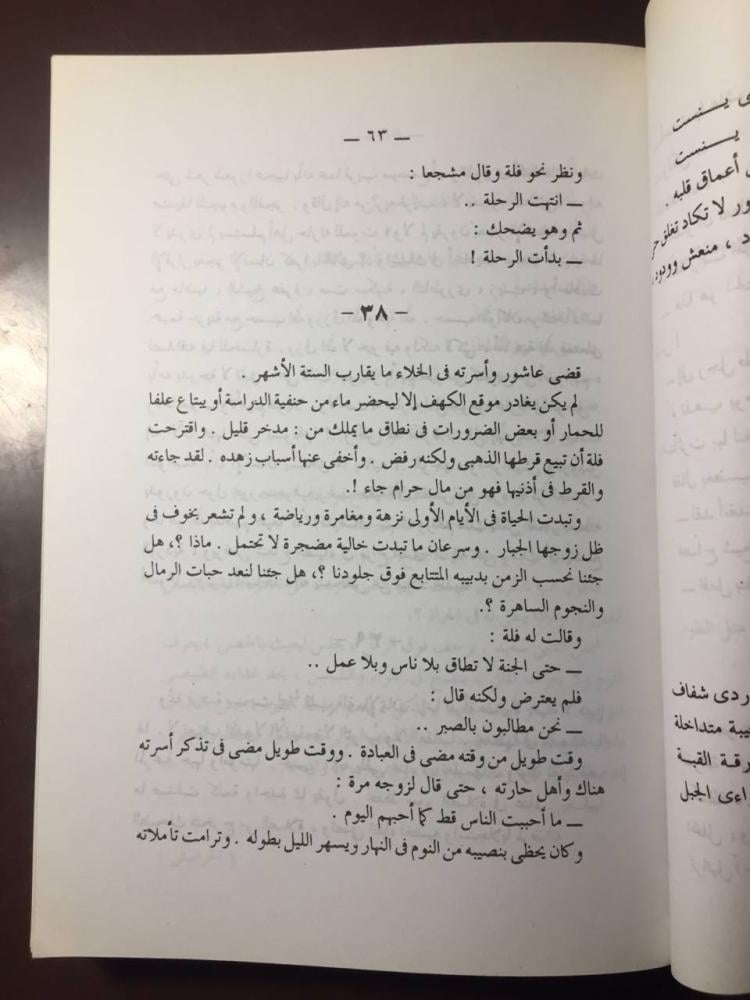 — ٦٣ —
ونظر نحو فلة وقال مشجعا :
— انتهت الرحلة ..
ثم وهو يضحك :
— بدأت الرحلة !
- ٣٨ -
قضى عاشور وأسرته فى الخلاء ما يقارب الستة الأشهر .
لم يكن يغادر موقع الكهف إلا ليحضر ماء من حنفية الدراسة أو يبتاع علفا
للحمار أو بعض الضرورات فى نطاق ما يملك من : مدخر قليل . واقترحت
فلة أن تبيع قرطها الذهبى ولكنه رفض . وأخفى عنها أسباب زهده . لقد جاءته
والقرط فى أذنيها فهو من مال حرام جاء !.
وتبدت الحياة فى الأيام الأولى نزهة ومغامرة ورياضة ، ولم تشعر بخوف فى
ظل زوجها الجبار . وسرعان ما تبدت خالية مضجرة لا تحتمل . ماذا ؟، هل
جئنا نحسب الزمن بدبيبه المتتابع فوق جلودنا ؟، هل جئنا لنعد حبات الرمال
والنجوم الساهرة ؟.
وقالت له فلة :
— حتى الجنة لا تطاق بلا ناس وبلا عمل ..
فلم يعترض ولكنه قال :
— نحن مطالبون بالصبر ..
وقت طويل من وقته مضى فى العبادة . ووقت طويل مضى فى تذكر أسرته
هناك وأهل حارته ، حتى قال لزوجه مرة :
— ما أحببت الناس قط كما أحبهم اليوم .
وكان يحظى بنصيبه من النوم فى النهار ويسهر الليل بطوله . وترامت تأملاته
ينست
ينست
أعماق قلبه .
لا تكاد تغلق
، منعش وودود
ردى شفاف
متداخلة
رقة القبة
الجبل